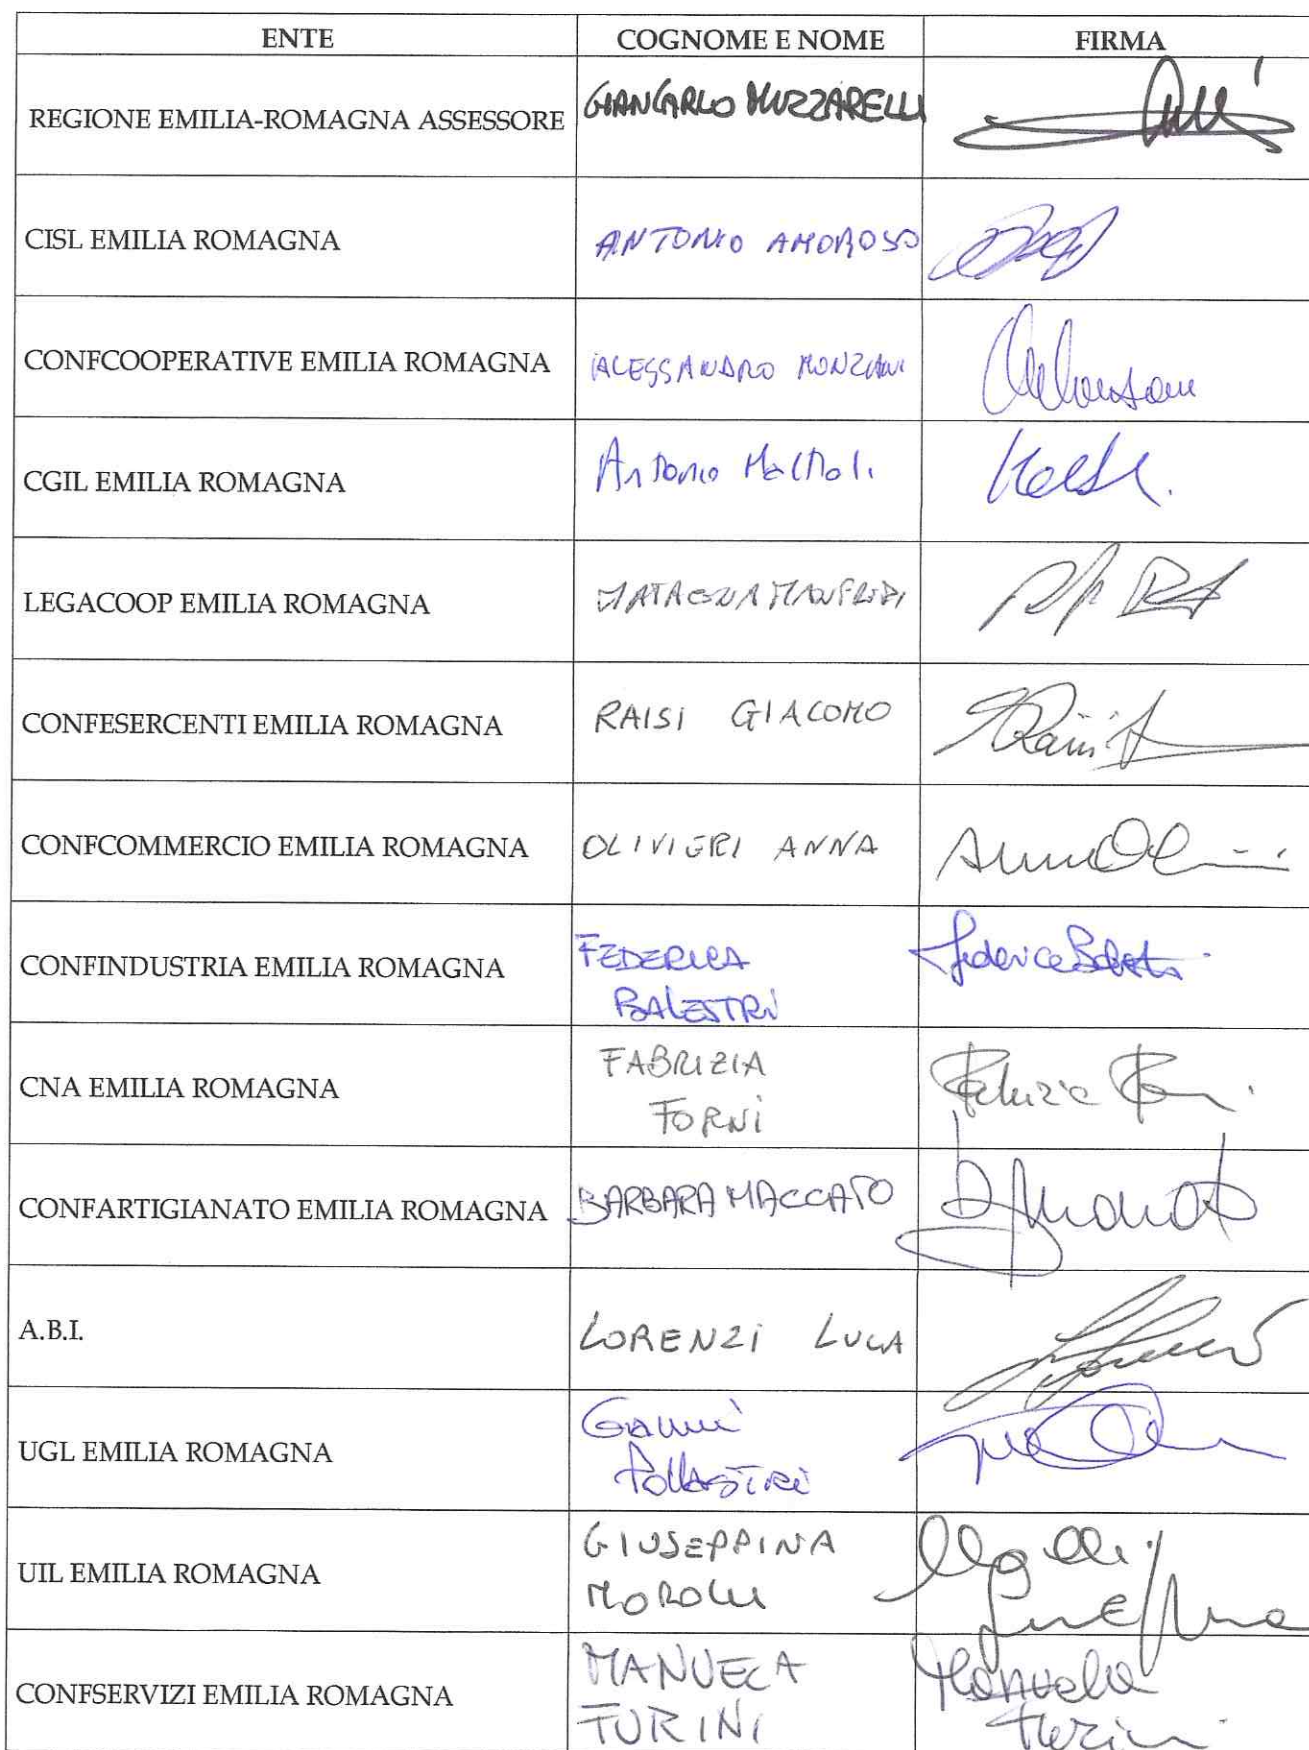 ENTE COGNOME E NOME FIRMA
REGIONE EMILIA-ROMAGNA ASSESSORE GIANCARLO MUZZARELLI
CISL EMILIA ROMAGNA ANTONIO AMOROSO
CONFCOOPERATIVE EMILIA ROMAGNA ALESSANDRO MONZANI
CGIL EMILIA ROMAGNA Antonio
LEGACOOP EMILIA ROMAGNA
CONFESERCENTI EMILIA ROMAGNA RAISI GIACOMO
CONFCOMMERCIO EMILIA ROMAGNA OLIVIERI ANNA
CONFINDUSTRIA EMILIA ROMAGNA FEDERICA Federica
BALESTRI
CNA EMILIA ROMAGNA FABRIZIA Fabrizia
FORNI
CONFARTIGIANATO EMILIA ROMAGNA BARBARA MACCATO
A.B.I. LORENZI LUCA
UGL EMILIA ROMAGNA Gianni
Pollastri
UIL EMILIA ROMAGNA GIUSEPPINA
MOROLLI
CONFSERVIZI EMILIA ROMAGNA MANUELA Manuela
TURINI Turini